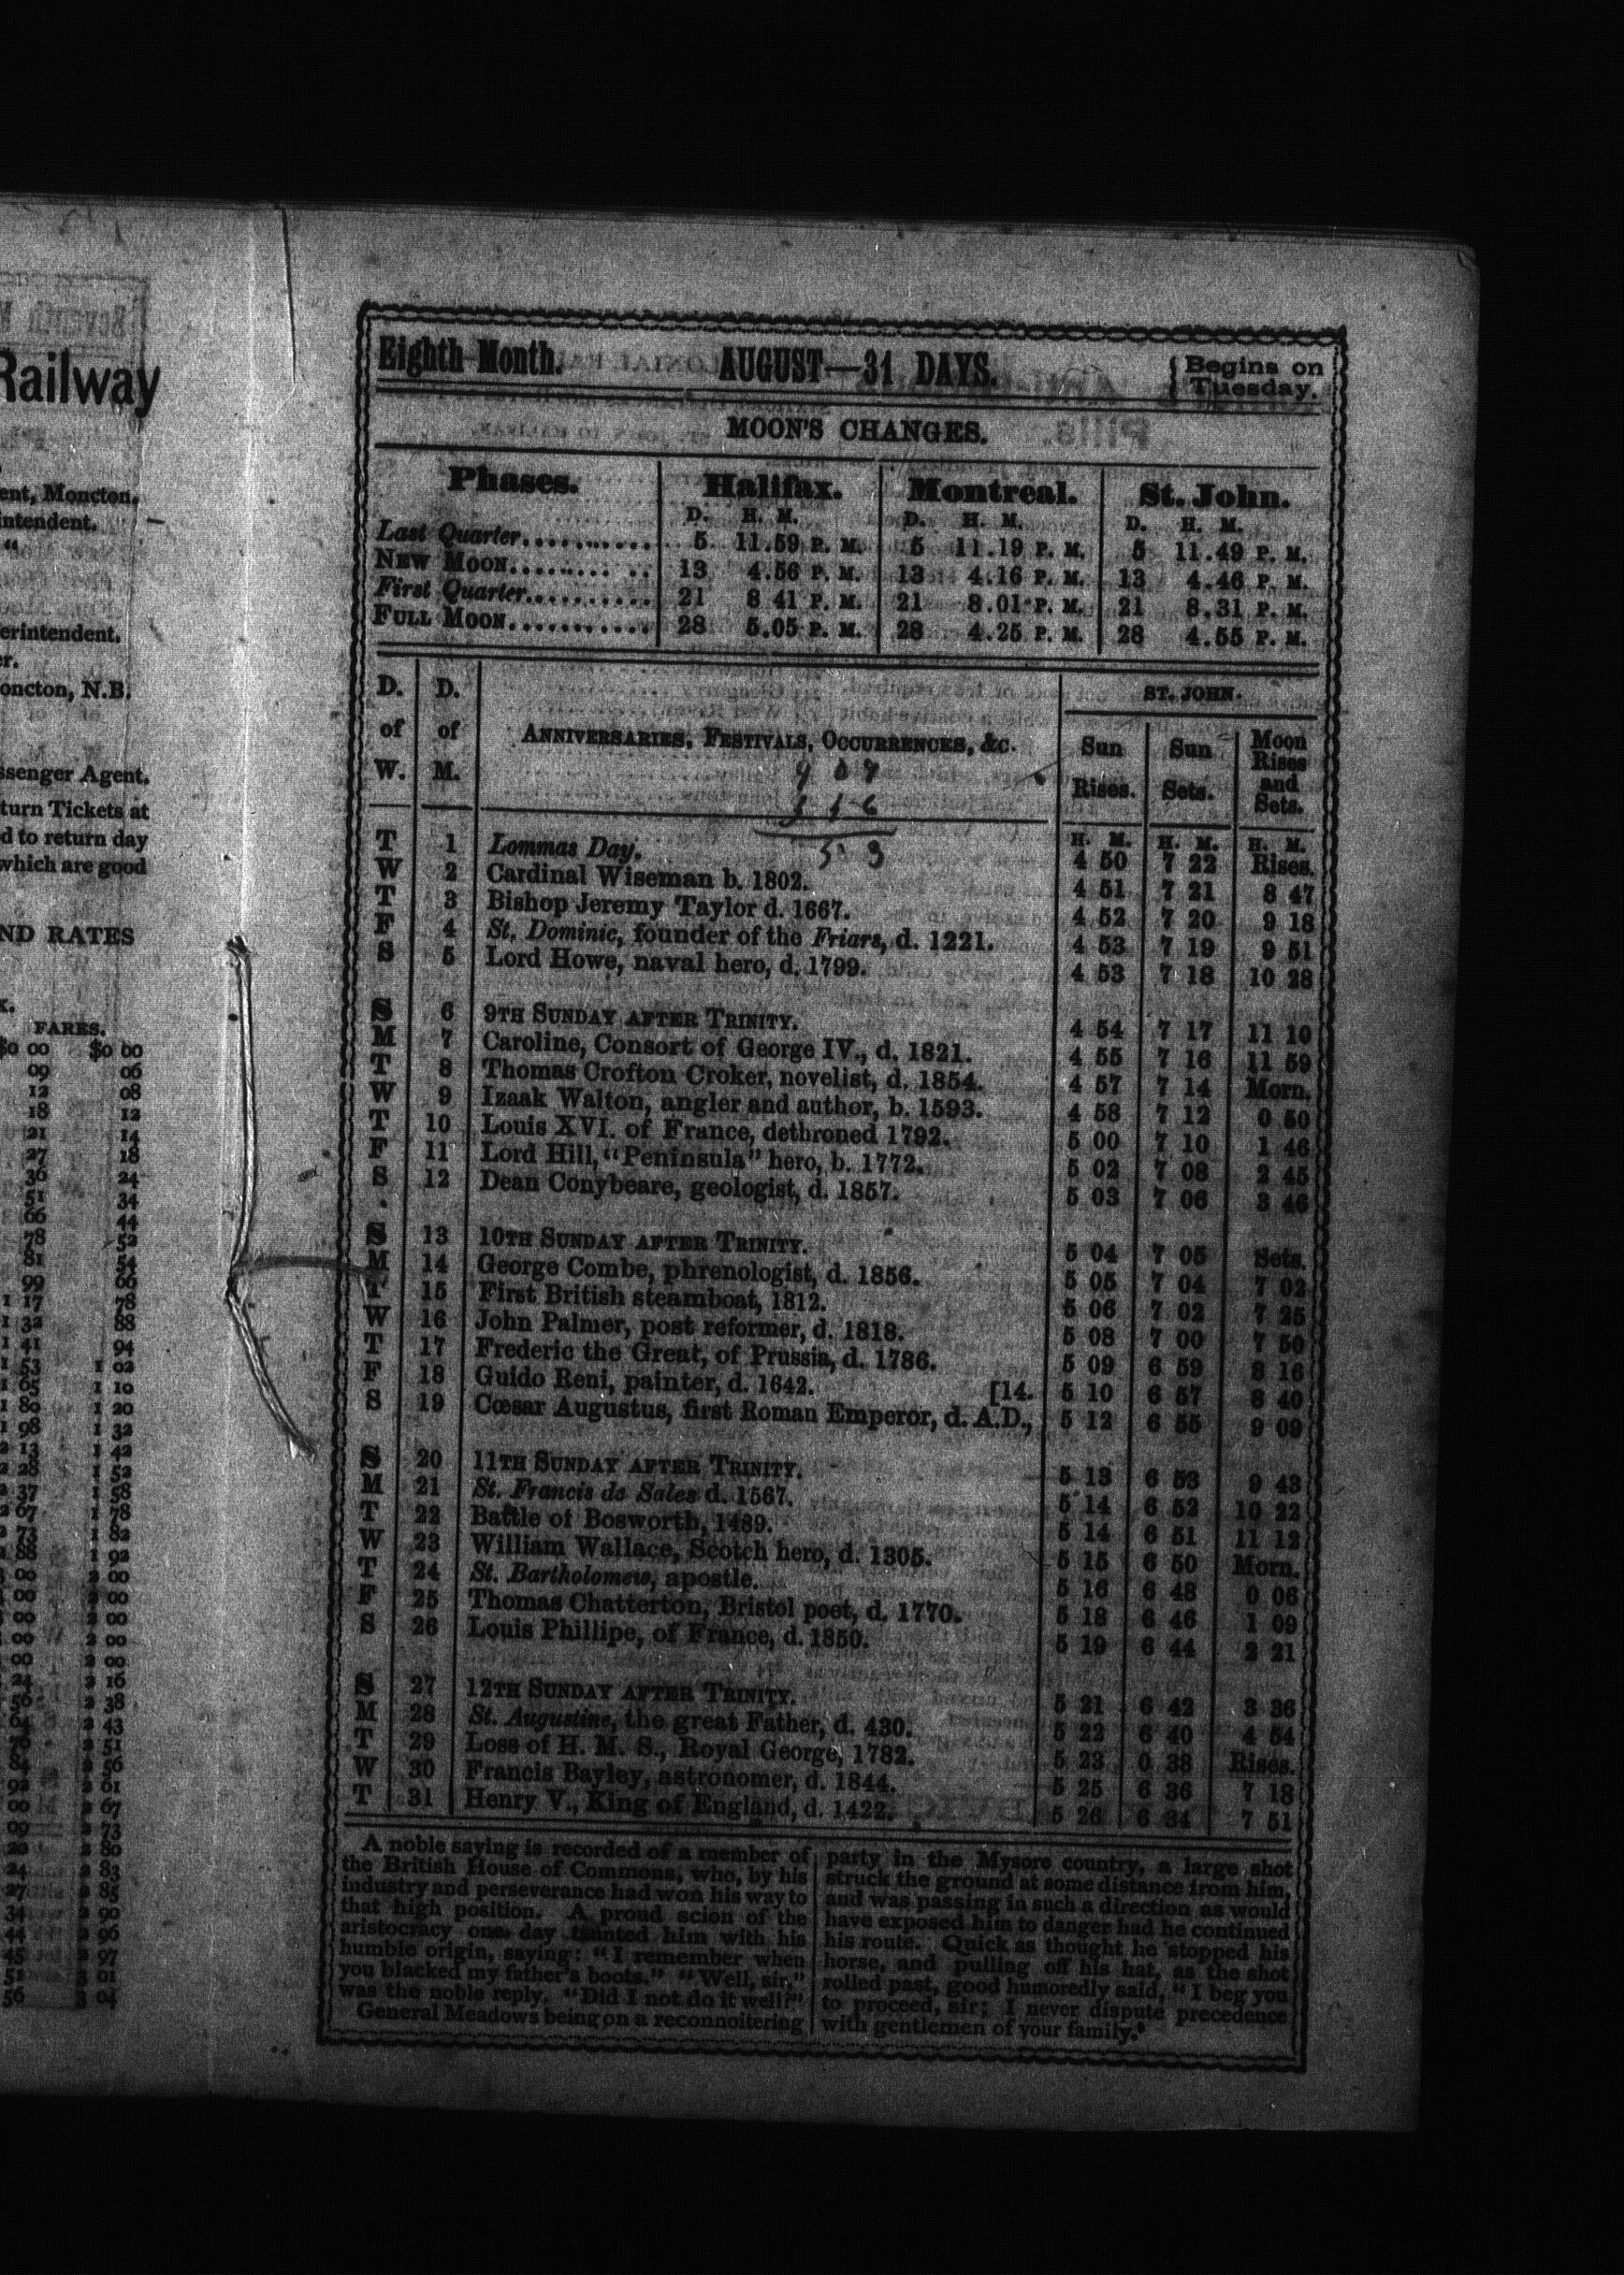 Railway
ent, Moncton.
intendent.
"
erintendent.
er.
oncton, N.B.
ssenger Agent.
turn Tickets at
d to return day
which are good
ND RATES
FARES.
$0 00 $0 00
09 06
12 08
18 12
21 14
27 18
36 24
51 34
66 44
78 52
81 54
99 66
1 17 78
1 32 88
1 41 94
1 53 1 02
1 65 1 10
1 80 1 20
1 98 1 32
2 13 1 42
2 28 1 52
2 37 1 58
2 67 1 78
2 73 1 82
88 1 92
00 2 00
00 2 00
00 2 00
00 2 00
00 2 00
24 2 16
56 2 38
64 2 43
76 2 51
84 2 56
92 2 61
00 2 67
09 2 73
20 2 80
24 2 83
27 2 85
34 2 90
44 2 96
45 2 97
51 3 01
56 3 04
Eighth Month. AUGUST—31 DAYS. { Begins on
Tuesday.
MOON'S CHANGES.
Phases. Halifax. Montreal. St. John.
D. H. M. D. H. M. D. H. M.
Last Quarter........... 5 11.59 P. M. 5 11.19 P. M. 5 11.49 P. M.
NEW MOON........ .. 13 4.56 P. M. 13 4.16 P. M. 13 4.46 P. M.
First Quarter.......... 21 8 41 P. M. 21 8.01 P. M. 21 8.31 P. M.
FULL MOON........... 28 5.05 P. M. 28 4.25 P. M. 28 4.55 P. M.
D. D. ST. JOHN.
of of ANNIVERSARIES, FESTIVALS, OCCURRENCES, &C. Sun Sun Moon
Rises
W. M. Rises. Sets. and
Sets.
H. M. H. M. H. M.
T 1 Lommas Day. 4 50 7 22 Rises.
W 2 Cardinal Wiseman b. 1802. 4 51 7 21 8 47
T 3 Bishop Jeremy Taylor d. 1667. 4 52 7 20 9 18
F 4 St. Dominic, founder of the Friars, d. 1221. 4 53 7 19 9 51
S 5 Lord Howe, naval hero, d. 1799. 4 53 7 18 10 28
S 6 9TH SUNDAY AFTER TRINITY. 4 54 7 17 11 10
M 7 Caroline, Consort of George IV., d. 1821. 4 55 7 16 11 59
T 8 Thomas Crofton Croker, novelist, d. 1854. 4 57 7 14 Morn.
W 9 Izaak Walton, angler and author, b. 1593. 4 58 7 12 0 50
T 10 Louis XVI. of France, dethroned 1792. 5 00 7 10 1 46
F 11 Lord Hill, "Peninsula" hero, b. 1772. 5 02 7 08 2 45
S 12 Dean Conybeare, geologist, d. 1857. 5 03 7 06 3 46
S 13 10TH SUNDAY AFTER TRINITY. 5 04 7 05 Sets.
M 14 George Combe, phrenologist, d. 1856. 5 05 7 04 7 02
T 15 First British steamboat, 1812. 5 06 7 02 7 25
W 16 John Palmer, post reformer, d. 1818. 5 08 7 00 7 50
T 17 Frederic the Great, of Prussia, d. 1786. 5 09 6 59 8 16
F 18 Guido Reni, painter, d. 1642. [14. 5 10 6 57 8 40
S 19 Cœsar Augustus, first Roman Emperor, d. A.D., 5 12 6 55 9 09
S 20 11TH SUNDAY AFTER TRINITY. 5 13 6 53 9 43
M 21 St. Francis de Sales d. 1567. 5 14 6 52 10 22
T 22 Battle of Bosworth, 1489. 5 14 6 51 11 12
W 23 William Wallace, Scotch hero, d. 1305. 5 15 6 50 Morn.
T 24 St. Bartholomew, apostle. 5 16 6 48 0 06
F 25 Thomas Chatterton, Bristol poet, d. 1770. 5 18 6 46 1 09
S 26 Louis Phillipe, of France, d. 1850. 5 19 6 44 2 21
S 27 12TH SUNDAY AFTER TRINITY. 5 21 6 42 3 36
M 28 St. Augustine, the great Father, d. 430. 5 22 6 40 4 54
T 29 Loss of H. M. S., Royal George, 1782. 5 23 0 38 Rises.
W 30 Francis Bayley, astronomer, d. 1844. 5 25 6 36 7 18
T 31 Henry V., King of England, d. 1422. 5 26 6 34 7 51
A noble saying is recorded of a member of
the British House of Commons, who, by his
industry and perseverance had won his way to
that high position. A proud scion of the
aristocracy one day taunted him with his
humble origin, saying: "I remember when
you blacked my father's boots." "Well, sir,"
was the noble reply. "Did I not do it well?"
General Meadows being on a reconnoitering
party in the Mysore country, a large shot
struck the ground at some distance from him,
and was passing in such a direction as would
have exposed him to danger had he continued
his route. Quick as thought he stopped his
horse, and pulling off his hat, as the shot
rolled past, good humoredly said, "I beg you
to proceed, sir; I never dispute precedence
with gentlemen of your family."